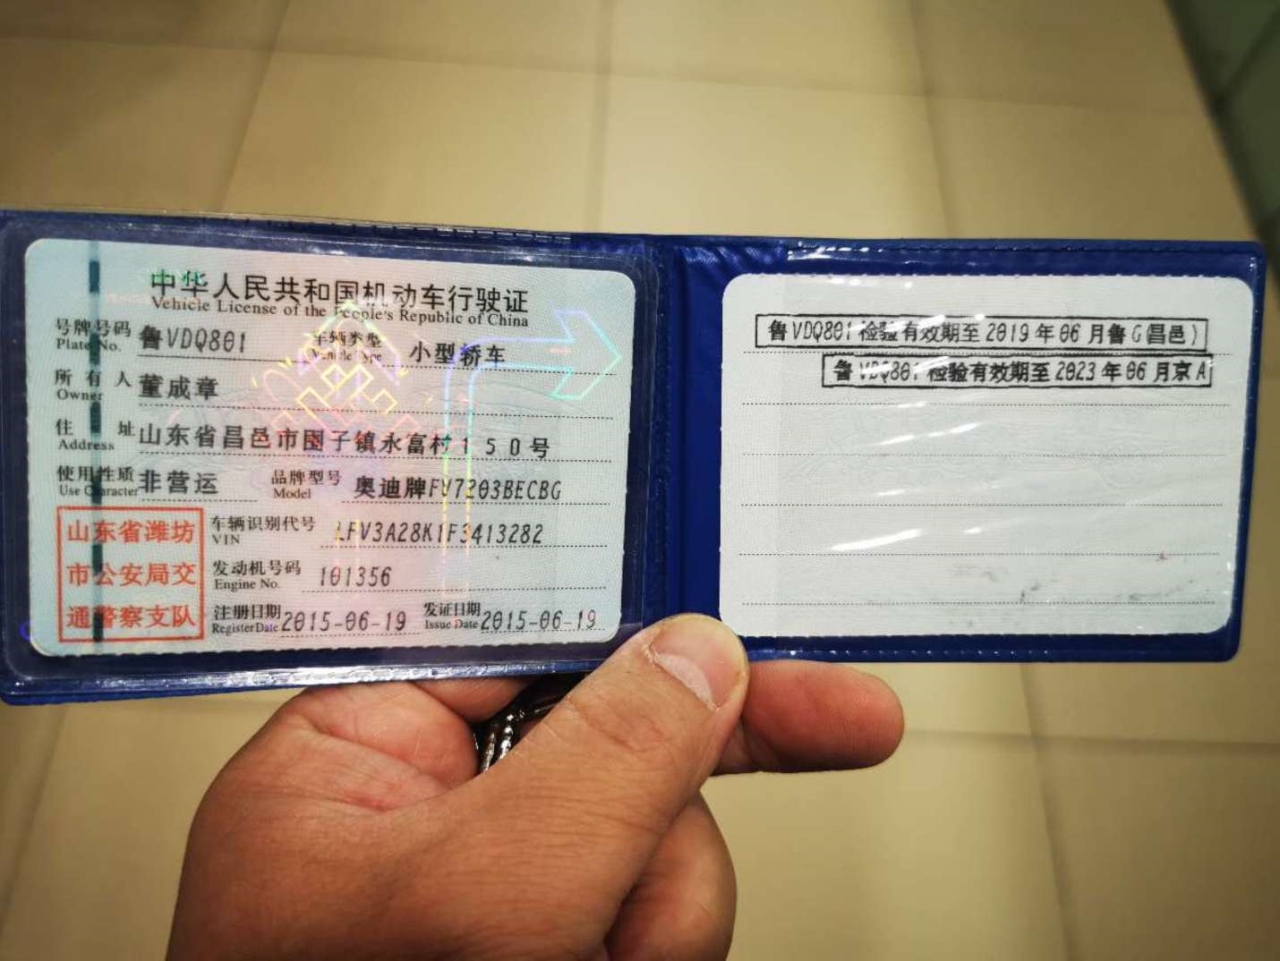 中华人民共和国机动车行驶证
Vehicle License of the People's Republic of China
号牌号码 鲁VDQ801 车辆类型 小型轿车
Plate No. Vehicle Type
所有人 董成章
Owner
住址 山东省昌邑市围子镇永富村150号
Address
使用性质 非营运 品牌型号 奥迪牌FV7203BECBG
Use Character Model
山东省潍坊
市公安局交
通警察支队
车辆识别代号 LFV3A28K1F3413282
VIN
发动机号码 101356
Engine No.
注册日期 2015-06-19 发证日期 2015-06-19
Register Date Issue Date
鲁VDQ801 检验有效期至 2019年06月鲁G(昌邑)
鲁VDQ801 检验有效期至 2023年06月京A